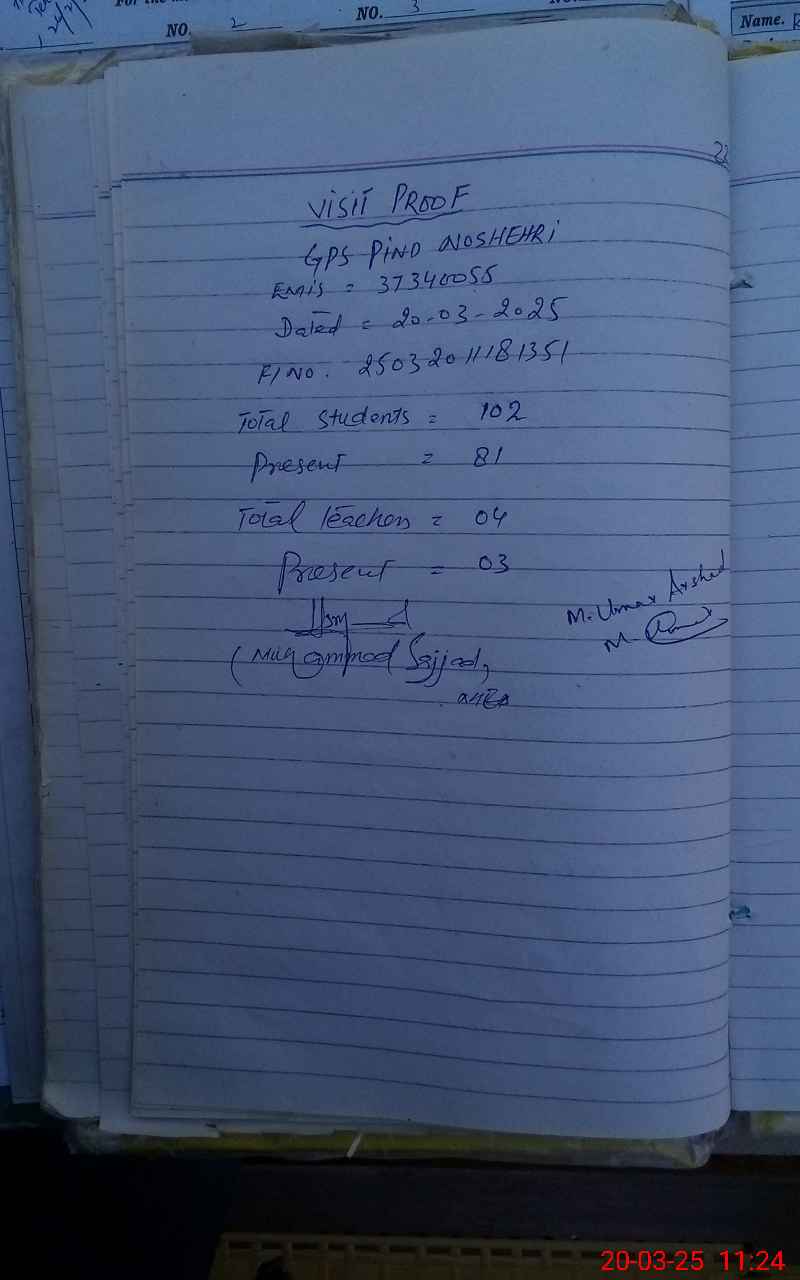 NO. 2
NO. 3
Name.
VISIT PROOF
GPS PIND NOSHEHRI
EMIS = 37340055
Dated = 20-03-2025
F/NO. 25032011181351
Total Students = 102
Present = 81
Total teachers = 04
Present = 03
M. Umar Arshad
M. Umar
(Muhammad Sajjad,
20-03-25 11:24